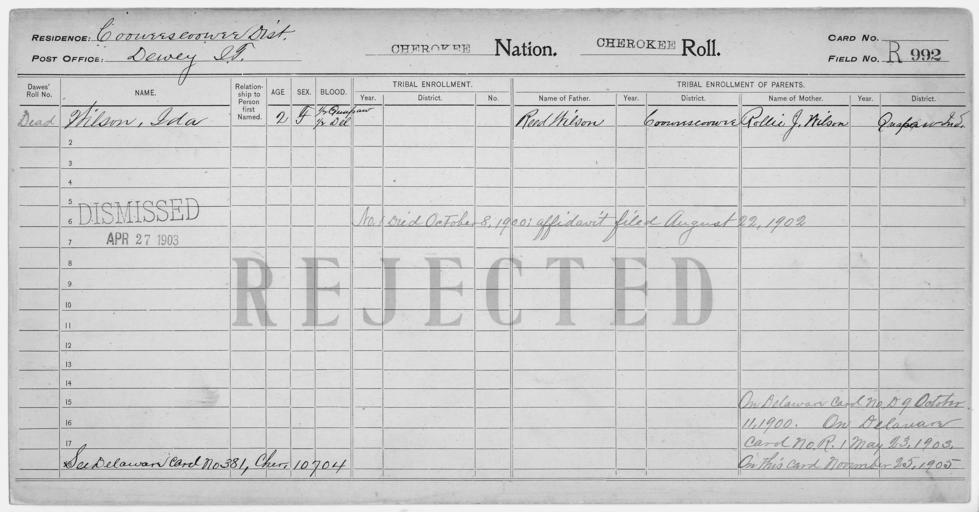 RESIDENCE: Cooweescoowee Dist.
POST OFFICE: Dewey I.T.
CHEROKEE Nation. CHEROKEE Roll.
CARD NO.
FIELD NO. R 992
Dawes' Roll No. NAME. Relationship to Person first Named. AGE SEX. BLOOD. TRIBAL ENROLLMENT. TRIBAL ENROLLMENT OF PARENTS.
Year. District. No. Name of Father. Year. District. Name of Mother. Year. District.
Dead Wilson, Ida 2 F Reed Wilson Cooweescoowee Rollie J. Wilson
2
3
4
5
DISMISSED
6 No. 1 Died October 8, 1900; affidavit filed August 22, 1902
APR 27 1903
7
8
REJECTED
9
10
11
12
13
14
15 On Delaware Card No. D 9 October
16 11, 1900. On Delaware
17 Card No. R. 1 May 23, 1903.
See Delaware Card No 381, Cher. 10704 On this card November 25, 1905